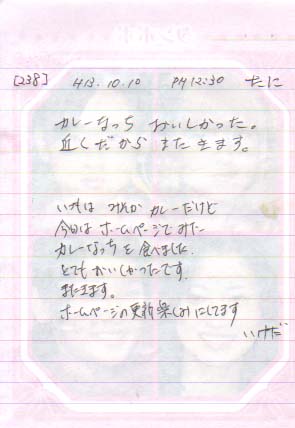 [238] H13.10.10 PM12:30 たに
カレーなっち おいしかった。
近くだから またきます。
いつもは カレーだけど
今回はホームページでみた
カレーなっちを食べました。
とてもおいしかったです。
またきます。
ホームページの更新楽しみにしてます
いけだ